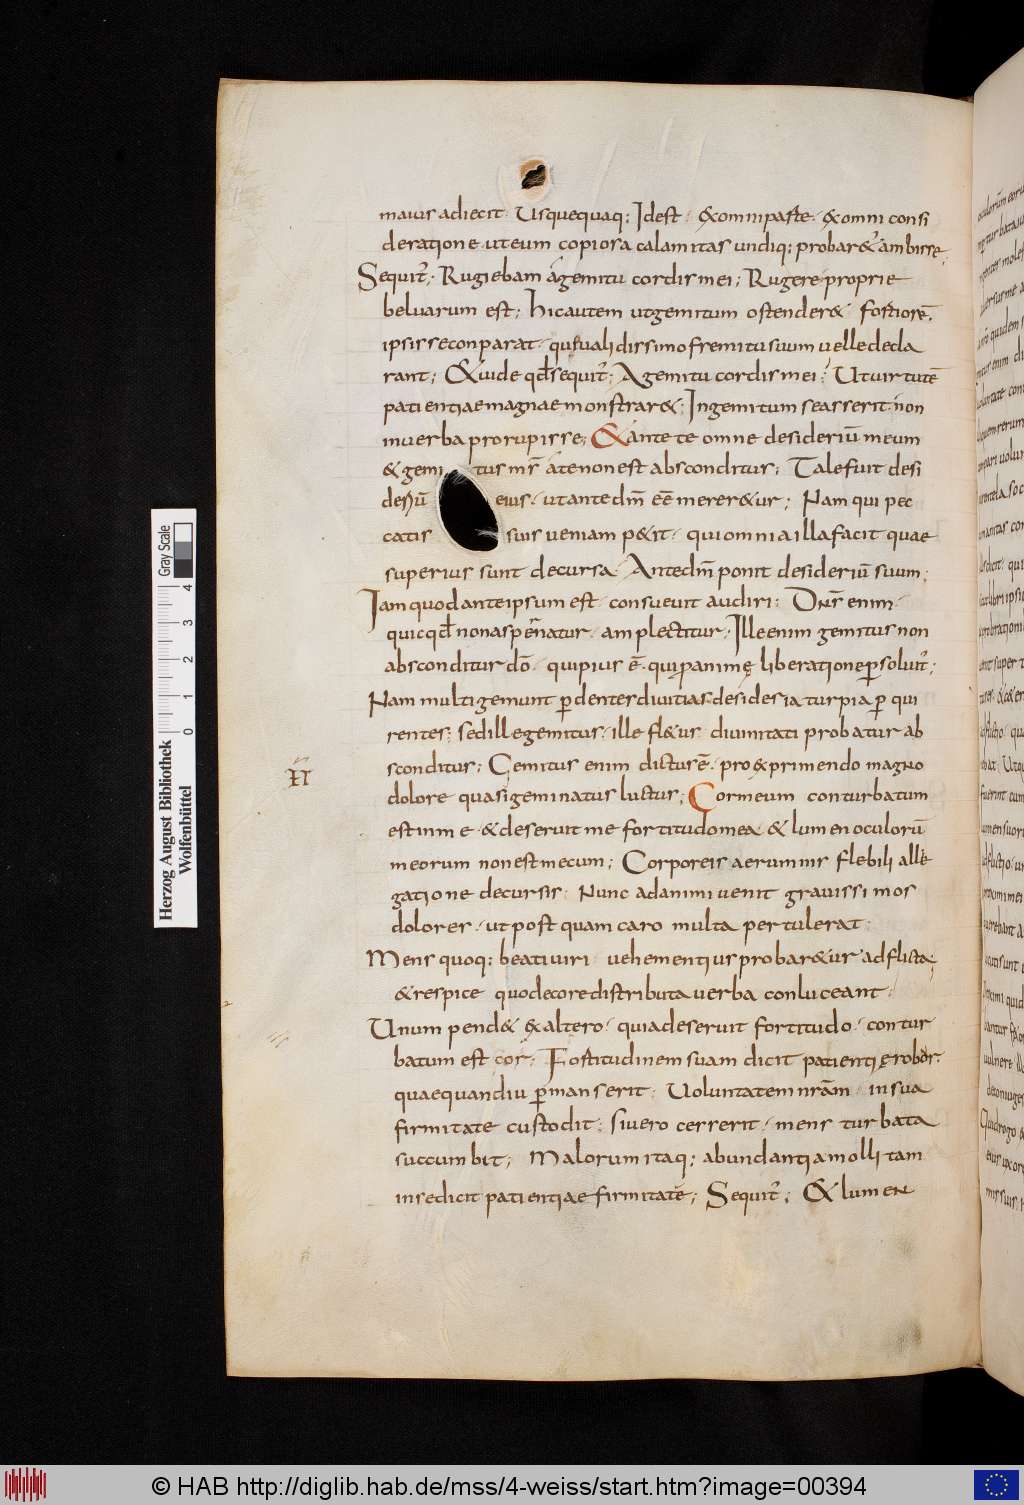 maius adiecit. Usquequaq; Idest. &omniparte. &omni consi
deratione uteum copiosa calamitas undiq; probar& ambisse.
Sequit̃. Rugiebam agemitu cordis mei; Rugere proprie
beluarum est; hicautem utgemitum ostender& fortiorẽ.
ipsis seconparat. quisualidissimo fremitu suum uelle decla
rant; &uide qđ sequit̃; Agemitu cordis mei; Utuirtutẽ
patientiae magnae monstrar&; Ingemitum seasserit. non
inuerba prorupisse; &ante te omne desideriũ meum
&gemi tus mẽs ate non est absconditus; Tale fuit desi
deriũ eius. utantedm̃ eẽ merer&ur; Nam qui pec
catis suis ueniam p&it. quiomnia illa facit quae
superius sunt decursa. Antedm̃ ponit desideriũ suum;
Iam quod anteipsum est. consueuit audiri; Dn̄s enim.
quicqđ non aspernatur. amplectitur; Ille enim gemitus non
absconditur dō. quipius ē. qui pro animę liberatione persoluit̃;
Nam multi gemunt perdentes diuitias. desideria turpia per qui
rentes; sed ille gemitus. ille fl&us diuinitati probatur ab
sconditus; Gemitus enim dictus ē. pro exprimendo magno
dolore quasi geminatus luctus; Cor meum conturbatum
est in me. &deseruit me fortitudo mea & lumen oculorũ
meorum non est mecum; Corporeis aerumnis flebili alle
gatione decursis. Nunc ad animi uenit grauissimos
dolores. ut post quam caro multa pertulerat.
Mens quoq; beati uiri uehementius probar&ur adflicta;
&respice quo decore distributa uerba conluceant.
Unum pend& exaltero. quia deseruit fortitudo. contur
batum est cor; Fortitudinem suam dicit patientię robur.
quae quandiu permanserit. Uoluntatem nrãm in sua
firmitate custodit; si uero cesserit. mens turbata
succumbit; Malorum itaq; abundantia mollitam
in se dicit patientiae firmitatẽ; Sequit̃; & lumen
Gray Scale
Herzog August Bibliothek
Wolfenbüttel
0 1 2 3 4
© HAB http://diglib.hab.de/mss/4-weiss/start.htm?image=00394